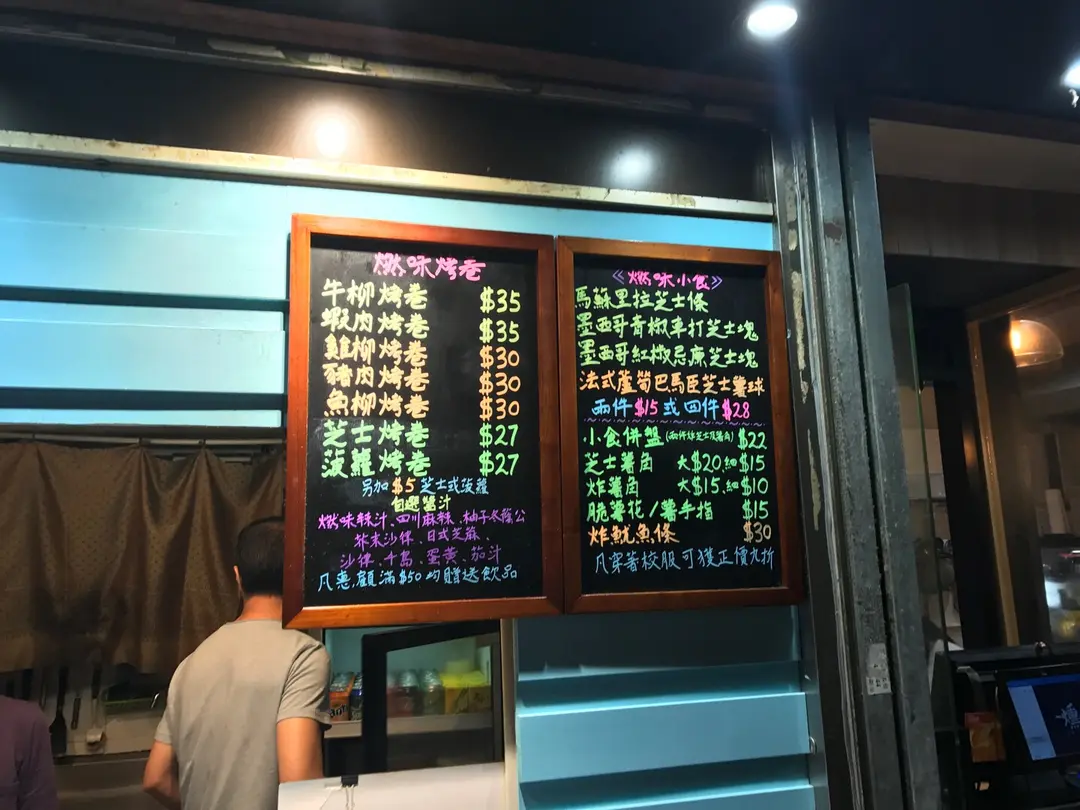 燃味烤卷
牛柳烤卷 $35
蝦肉烤卷 $35
雞柳烤卷 $30
豬肉烤卷 $30
魚柳烤卷 $30
芝士烤卷 $27
菠蘿烤卷 $27
另加$5芝士或菠蘿
自選醬汁
燃味辣汁、四川麻辣、柚子冬蔭公
芥末沙律、日式芝麻、
沙律、千島、蛋黃、茄汁
凡惠顧滿$50均贈送飲品
《燃味小食》
馬蘇里拉芝士條
墨西哥青椒車打芝士塊
墨西哥紅椒忌廉芝士塊
法式蘆筍巴馬臣芝士薯球
兩件$15或四件$28
小食併盤(兩件炸芝士及薯角) $22
芝士薯角 大$20、細$15
炸薯角 大$15、細$10
脆薯花/薯手指 $15
炸魷魚條 $30
凡穿著校服可獲正價九折